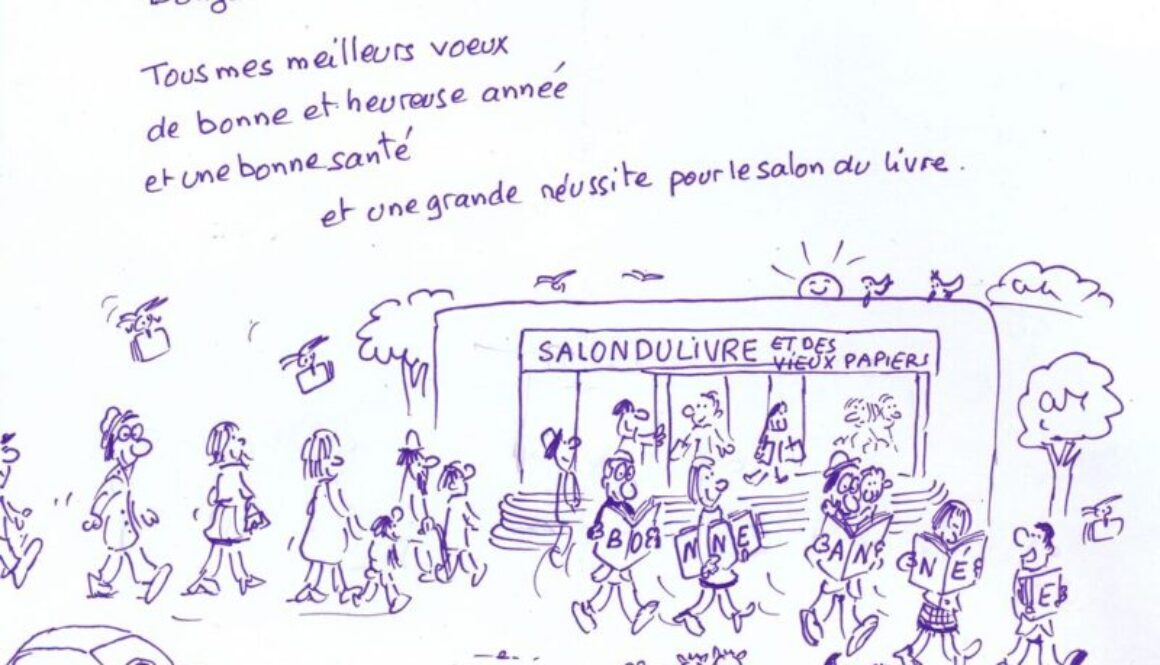 Tous mes meilleurs voeux
de bonne et heureuse année
et une bonne santé
et une grande réussite pour le salon du livre.
SALON DU LIVRE ET DES
VIEUX PAPIERS
BO NNE AN NÉ E